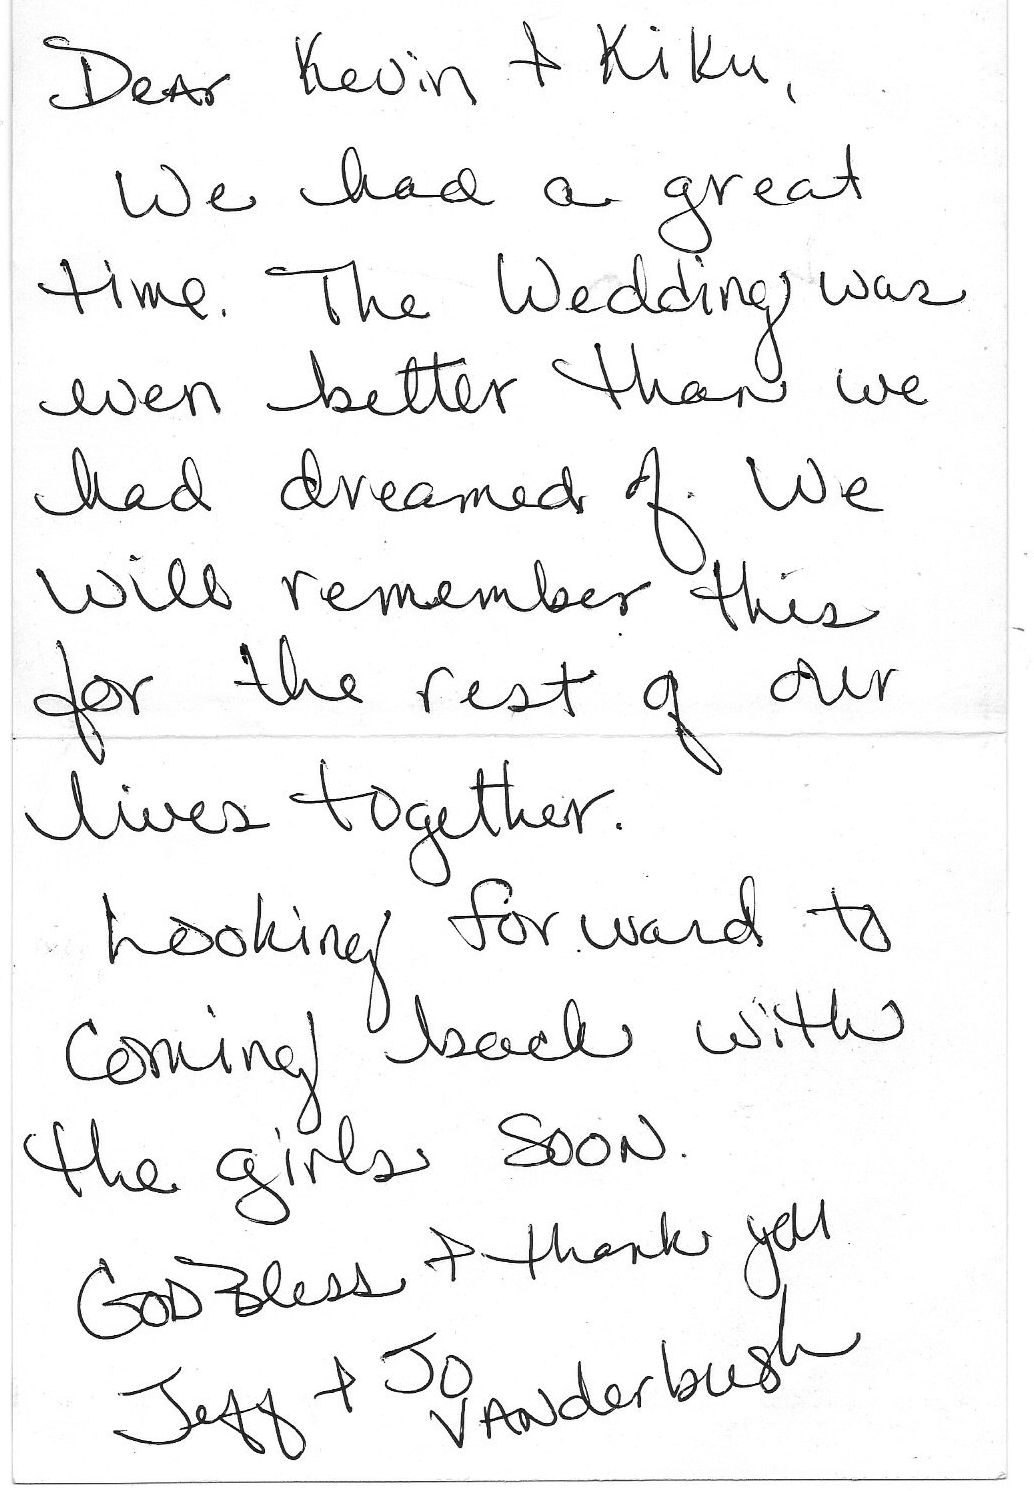 Dear Kevin + Kiku,
We had a great
time. The Wedding was
even better than we
had dreamed of. We
will remember this
for the rest of our
lives together.
Looking forward to
coming back with
the girls soon.
God Bless + thank you
Jeff + Jo
Vanderbush